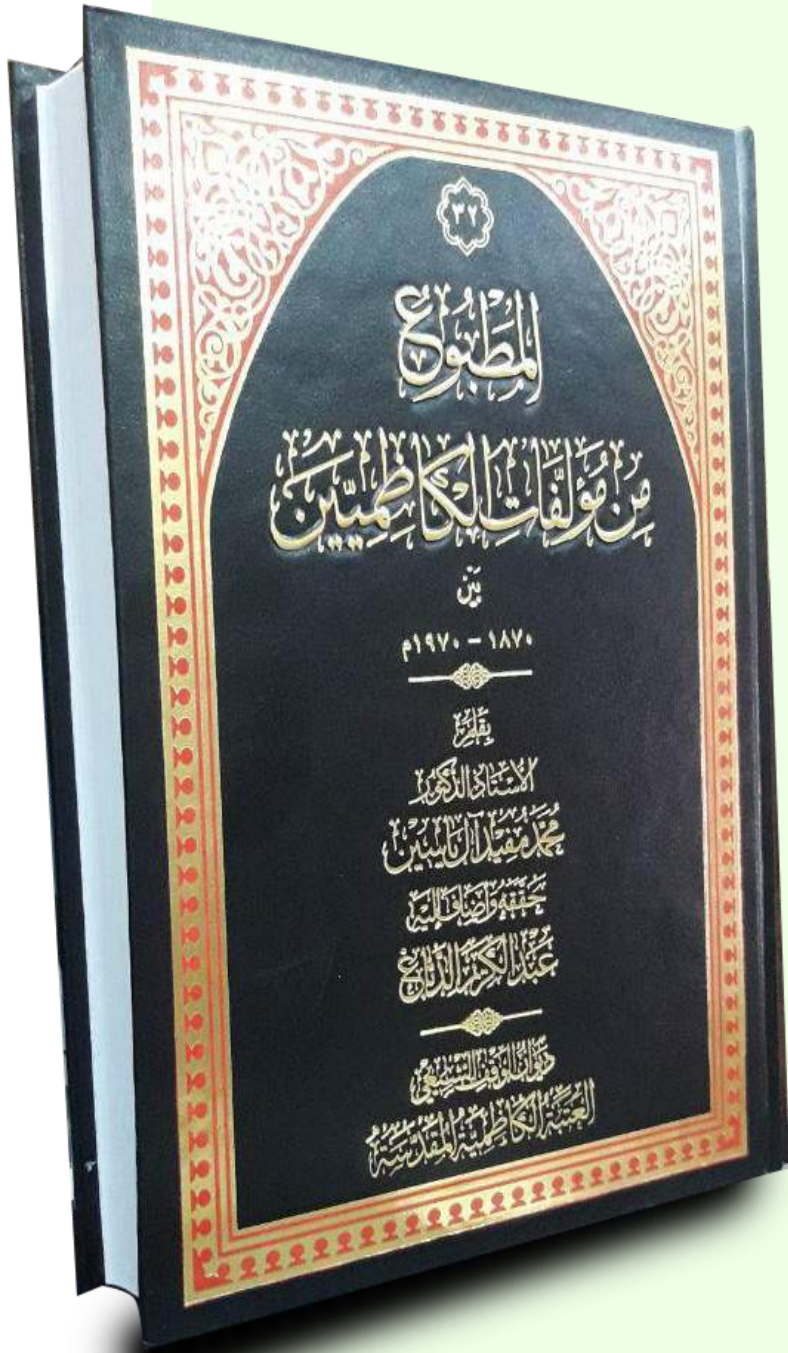 ٣٢
المطبوع
من مؤلفات الكاظميين
بين
١٨٧٠ - ١٩٧٠م
بقلم
الأستاذ الدكتور
محمد مفيد آل ياسين
حققه وأضاف إليه
عبد الكريم الدباغ
ديوان الوقف الشيعي
العتبة الكاظمية المقدسة